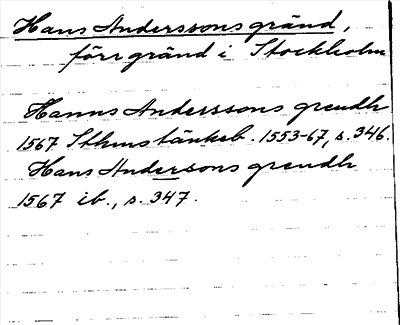 Hans Anderssons gränd,
förr gränd i Stockholm
Hanns Anderssons grendh
1567 Sthmstänkeb. 1553-67, s. 346.
Hans Andersons grendh
1567 ib., s. 347.